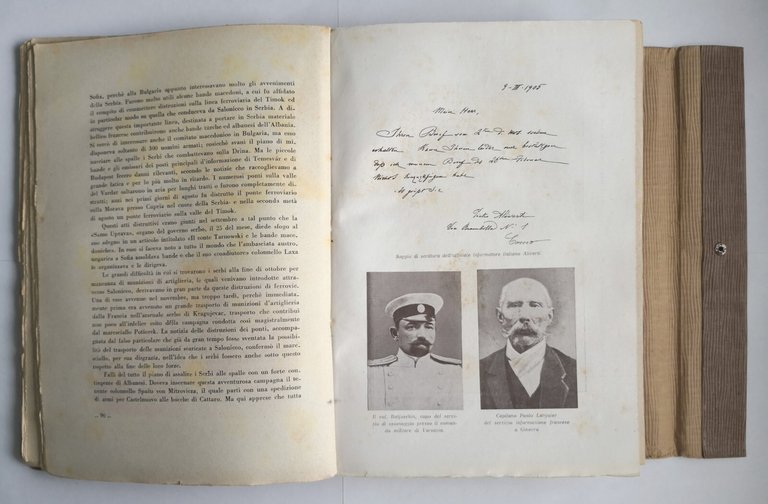 Sofia, perchè alla Bulgaria appunto interessavano molto gli avvenimenti
della Serbia. Furono molto utili alcune bande macedoni, a cui fu affidato
il compito di commettere distruzioni sulla linea ferroviaria del Timok ed
in particolar modo su quella che conduceva da Salonicco in Serbia. A di-
struggere questa importante linea, destinata a portare in Serbia materiale
bellico francese contribuirono anche bande turche ed albanesi dell'Albania.
Si cercò di interessare anche il comitato macedonico in Bulgaria, ma esso
disponeva soltanto di 300 uomini armati; cosicchè svanì il piano di mi-
nacciare alle spalle i Serbi che combattevano sulla Drina. Ma le piccole
bande e gli emissari dei posti principali d'informazione di Temesvár e di
Budapest fecero danni rilevanti, secondo le notizie che raccoglievamo a
grande fatica e per lo più molto in ritardo. I numerosi ponti sulla valle
del Vardar saltarono in aria per lunghi tratti e furono completamente di-
strutti; anzi nei primi giorni di agosto fu distrutto il ponte ferroviario
sulla Morava presso Cupria nel cuore della Serbia e nella seconda metà
di agosto un ponte ferroviario sulla valle del Timok.
Questi atti distruttivi erano giunti nel settembre a tal punto che la
«Samo Uprava», organo del governo serbo, il 25 del mese, diede sfogo al
suo sdegno in un articolo intitolato «Il conte Tarnowski e le bande mace-
doniche». In esso si faceva noto a tutto il mondo che l'ambasciata austro-
ungarica a Sofia assoldava bande e che il mio «coadiutore» colonnello Laxa
le organizzava e le dirigeva.
Le grandi difficoltà in cui si trovarono i serbi alla fine di ottobre per
mancanza di munizioni di artiglieria, le quali venivano introdotte attra-
verso Salonicco, derivavano in gran parte da queste distruzioni di ferrovie.
Una di esse avvenne nel novembre, ma troppo tardi, perchè immediata-
mente prima era avvenuto un grande trasporto di munizioni d'artiglieria
dalla Francia nell'arsenale serbo di Kragujevac, trasporto che contribuì
non poco all'infelice esito della campagna condotta così magistralmente
dal maresciallo Potiorek. La notizia delle distruzioni dei ponti, accompa-
gnata dal falso particolare che già da gran tempo fosse sventata la possibi-
lità del trasporto delle munizioni scaricate a Salonicco, confermò il mare-
sciallo, per sua disgrazia, nell'idea che i serbi fossero anche sotto questo
rispetto alla fine delle loro forze.
Fallì del tutto il piano di assalire i Serbi alle spalle con un forte con-
tingente di Albanesi. Doveva inscenare questa avventurosa campagna il te-
nente colonnello Spaits von Mitrovicza, il quale partì con una spedizione
di armi per Castelnuovo alle bocche di Cattaro. Ma qui apprese che tutta
— 96 —
9-III-1905
Mein Herr,
Ihren Brief vom
erhalten. Kann Ihnen leider nur bestätigen
daß ich meinen Brief des
Via N.° 1
Como
Saggio di scrittura dell'ufficiale informatore italiano Aliverti.
Il col. Batjuschin, capo del servi-
zio di spionaggio presso il coman-
do militare di Varsavia.
Capitano Paolo Larguier
del servizio informazione francese
a Ginevra